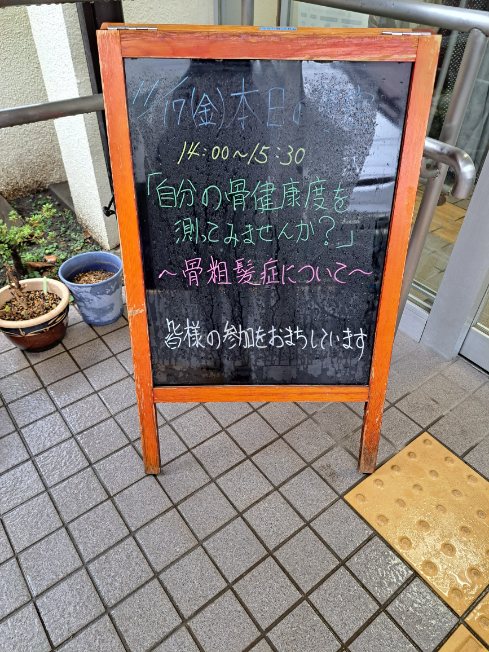 11/17(金)本日の
14:00〜15:30
「自分の骨健康度を
測ってみませんか?」
〜骨粗髪症について〜
皆様の参加をおまちしています